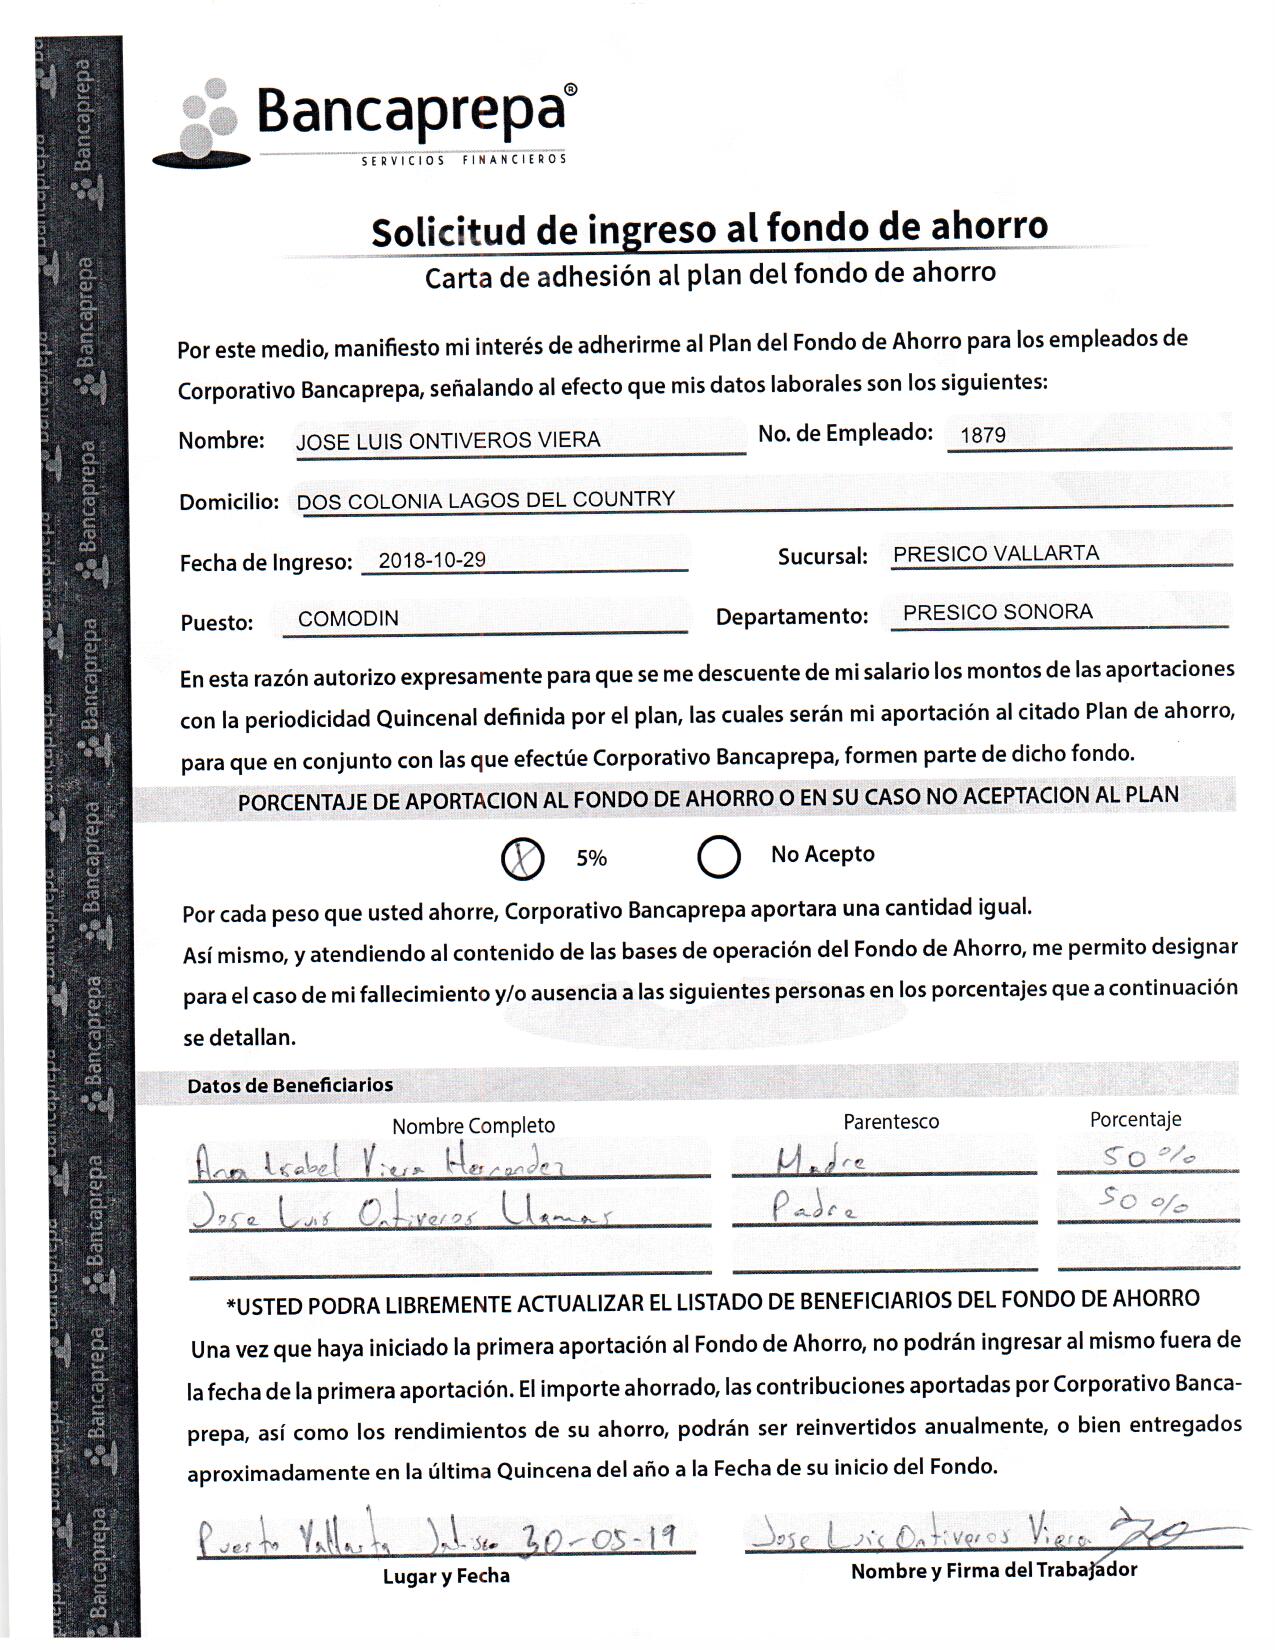 Bancaprepa®
SERVICIOS FINANCIEROS
Solicitud de ingreso al fondo de ahorro
Carta de adhesión al plan del fondo de ahorro
Por este medio, manifiesto mi interés de adherirme al Plan del Fondo de Ahorro para los empleados de
Corporativo Bancaprepa, señalando al efecto que mis datos laborales son los siguientes:
Nombre: JOSE LUIS ONTIVEROS VIERA No. de Empleado: 1879
Domicilio: DOS COLONIA LAGOS DEL COUNTRY
Fecha de Ingreso: 2018-10-29 Sucursal: PRESICO VALLARTA
Puesto: COMODIN Departamento: PRESICO SONORA
En esta razón autorizo expresamente para que se me descuente de mi salario los montos de las aportaciones
con la periodicidad Quincenal definida por el plan, las cuales serán mi aportación al citado Plan de ahorro,
para que en conjunto con las que efectúe Corporativo Bancaprepa, formen parte de dicho fondo.
PORCENTAJE DE APORTACION AL FONDO DE AHORRO O EN SU CASO NO ACEPTACION AL PLAN
X 5% No Acepto
Por cada peso que usted ahorre, Corporativo Bancaprepa aportara una cantidad igual.
Así mismo, y atendiendo al contenido de las bases de operación del Fondo de Ahorro, me permito designar
para el caso de mi fallecimiento y/o ausencia a las siguientes personas en los porcentajes que a continuación
se detallan.
Datos de Beneficiarios
Nombre Completo Parentesco Porcentaje
Ana Isabel Viera Hernandez Madre 50%
Jose Luis Ontiveros Llamas Padre 50%
*USTED PODRA LIBREMENTE ACTUALIZAR EL LISTADO DE BENEFICIARIOS DEL FONDO DE AHORRO
Una vez que haya iniciado la primera aportación al Fondo de Ahorro, no podrán ingresar al mismo fuera de
la fecha de la primera aportación. El importe ahorrado, las contribuciones aportadas por Corporativo Banca-
prepa, así como los rendimientos de su ahorro, podrán ser reinvertidos anualmente, o bien entregados
aproximadamente en la última Quincena del año a la Fecha de su inicio del Fondo.
Puerto Vallarta Jalisco 30-05-19 Jose Luis Ontiveros Viera
Lugar y Fecha Nombre y Firma del Trabajador